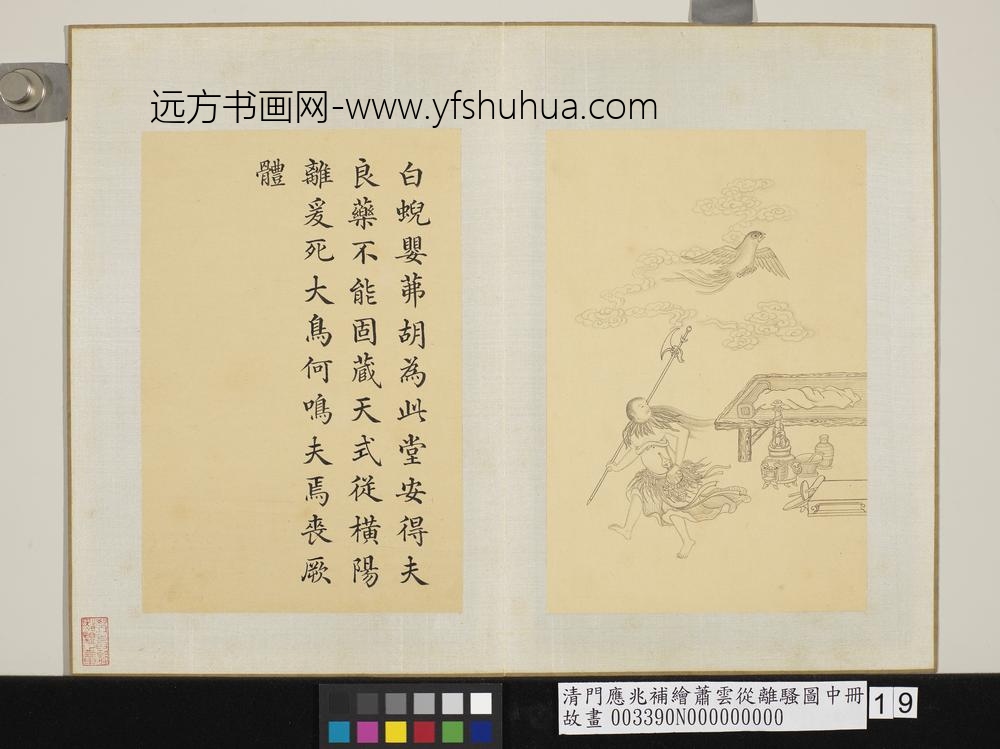 远方书画网-www.yfshuhua.com
白蜺嬰茀胡為此堂安得夫
良藥不能固蔵天式從橫陽
離爰死大鳥何鳴夫焉喪厥
體
清門應兆補繪蕭雲從離騷圖中冊
故畫 003390N000000000
19